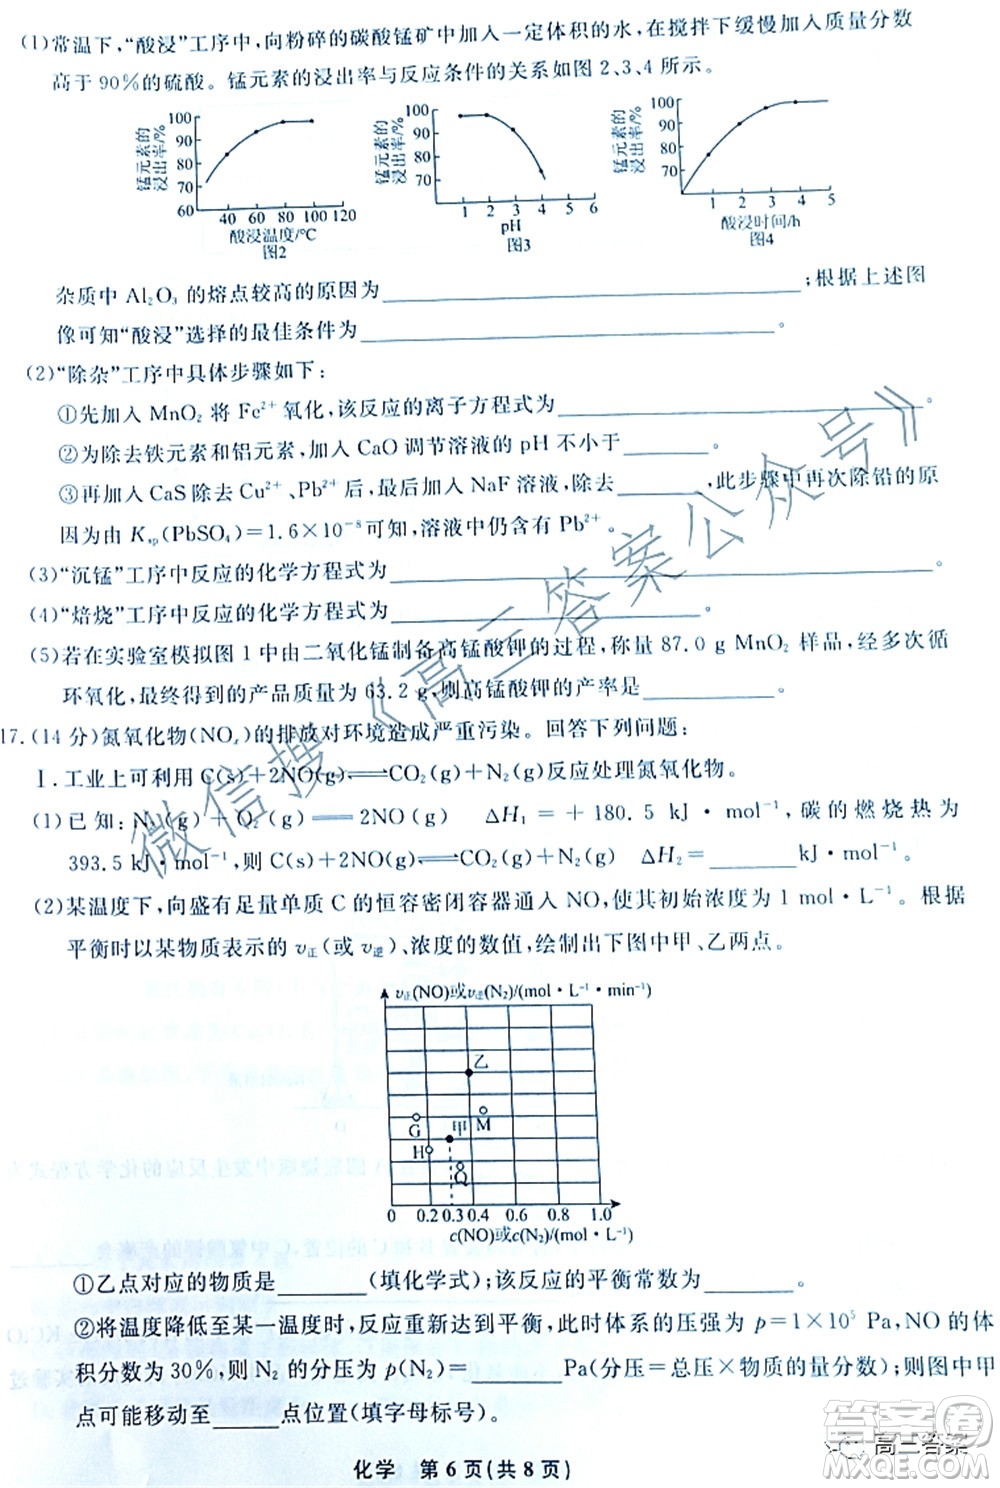 (1)常温下,“酸浸”工序中,向粉碎的碳酸锰矿中加入一定体积的水,在搅拌下缓慢加入质量分数
高于90%的硫酸。锰元素的浸出率与反应条件的关系如图2、3、4所示。
锰元素的浸出率/%
100
90
80
70
60
40 60 80 100 120
酸浸温度/℃
图2
锰元素的浸出率/%
100
90
80
70
1 2 3 4 5 6
pH
图3
锰元素的浸出率/%
100
90
80
70
1 2 3 4 5
酸浸时间/h
图4
杂质中 Al₂O₃ 的熔点较高的原因为____;根据上述图
像可知“酸浸”选择的最佳条件为____
(2)“除杂”工序中具体步骤如下:
①先加入 MnO₂ 将 Fe²⁺ 氧化,该反应的离子方程式为____。
②为除去铁元素和铝元素,加入 CaO 调节溶液的 pH 不小于____。
③再加入 CaS 除去 Cu²⁺、Pb²⁺ 后,最后加入 NaF 溶液,除去____,此步骤中再次除铅的原
因为由 Ksp(PbSO₄)=1.6×10⁻⁸ 可知,溶液中仍含有 Pb²⁺。
(3)“沉锰”工序中反应的化学方程式为____
(4)“焙烧”工序中反应的化学方程式为____
(5)若在实验室模拟图1中由二氧化锰制备高锰酸钾的过程,称量 87.0 g MnO₂ 样品,经多次循
环氧化,最终得到的产品质量为 63.2 g,则高锰酸钾的产率是____。
17.(14分)氮氧化物(NOₓ)的排放对环境造成严重污染。回答下列问题:
Ⅰ.工业上可利用 C(s)+2NO(g)⇌CO₂(g)+N₂(g)反应处理氮氧化物。
(1)已知:N₂(g)+O₂(g)══2NO(g) ΔH₁=+180.5 kJ·mol⁻¹,碳的燃烧热为
393.5 kJ·mol⁻¹,则 C(s)+2NO(g)⇌CO₂(g)+N₂(g) ΔH₂=____kJ·mol⁻¹。
(2)某温度下,向盛有足量单质C的恒容密闭容器通入NO,使其浓度为 1 mol·L⁻¹。根据
平衡时以某物质表示的 v正(或 v逆)、浓度的数值,绘制出下图中甲、乙两点。
v正(NO)或v逆(N₂)/(mol·L⁻¹·min⁻¹)
乙
G
甲
M
H
Q
0 0.2 0.3 0.4 0.6 0.8 1.0
c(NO)或c(N₂)/(mol·L⁻¹)
①乙点对应的物质是____(填化学式);该反应的平衡常数为____。
②将温度降低至某一温度时,反应重新达到平衡,此时体系的压强为 p=1×10⁵ Pa,NO的体
积分数为30%,则 N₂ 的分压为 p(N₂)=____Pa(分压=总压×物质的量分数);则图中甲
点可能移动至____点位置(填字母标号)。
化学 第6页(共8页)
微信搜《高三答案公众号》
答案圈
高三答案